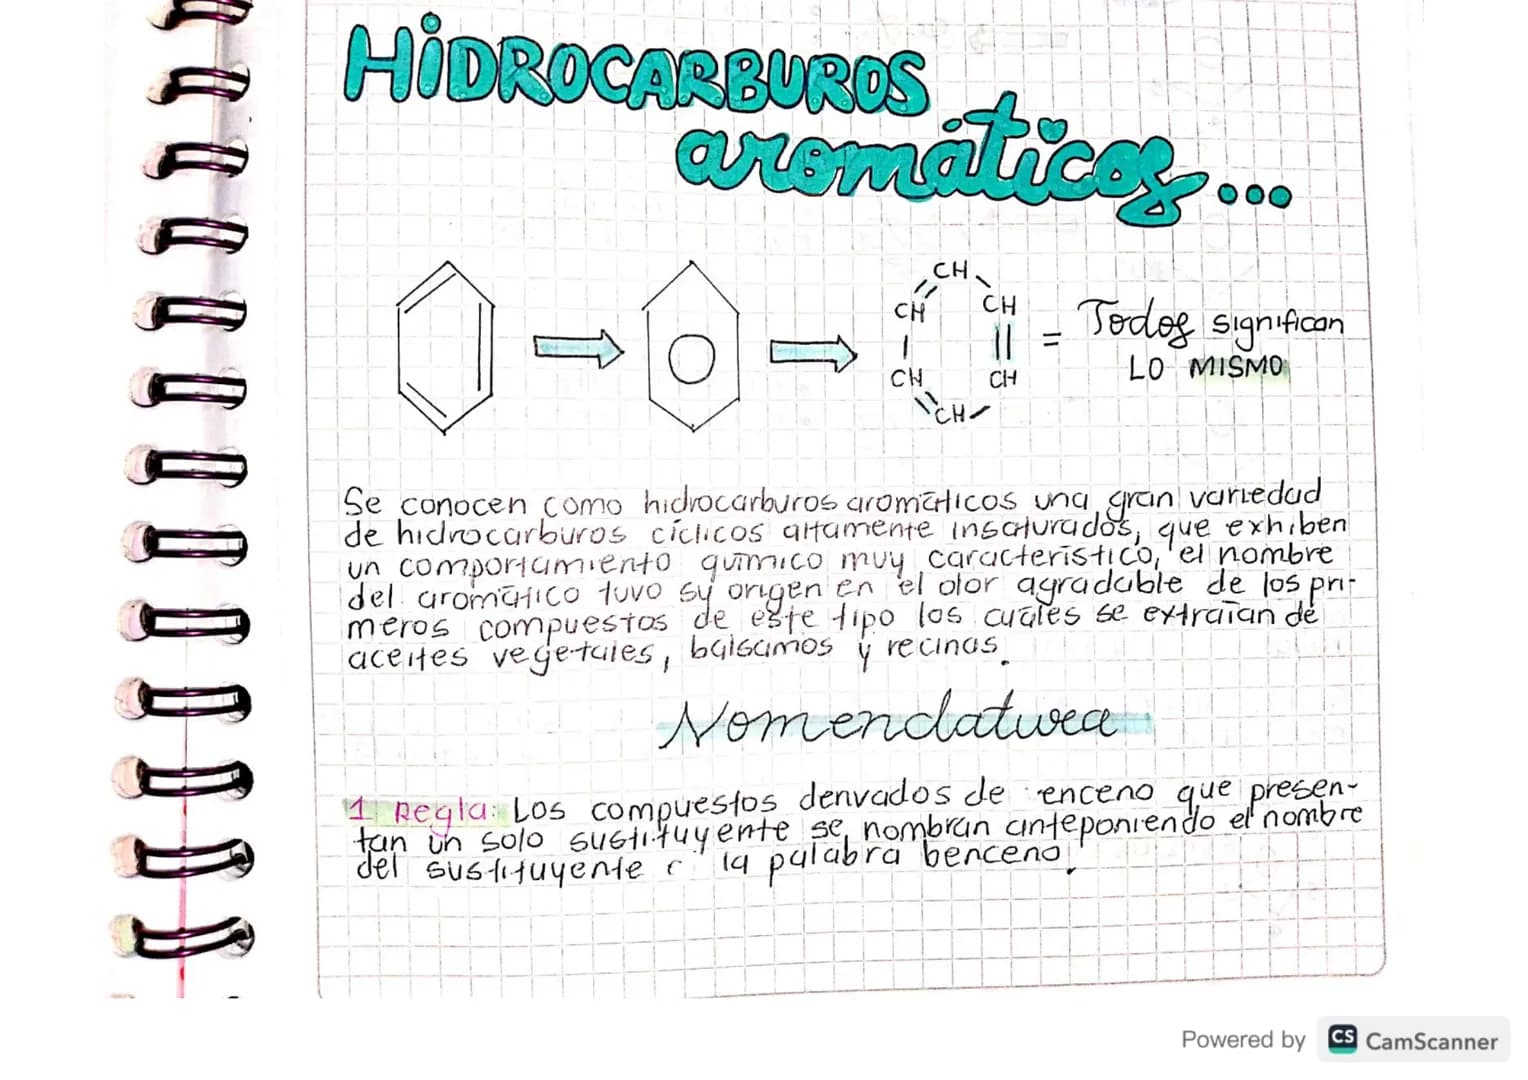 HiDROCARBUROS
aromáticos...
CH
CH CH
CH CH
CH
= Todos significan
LO MISMO
Se conocen como hidrocarburos aromáticos una gran variedad
de hidrocarburos cíclicos altamente insaturados, que exhiben
un comportamiento químico muy característico, el nombre
del aromático tuvo su origen en el olor agradable de los pri-
meros compuestos de este tipo los cuáles se extraían de
aceites vegetales, balsamos y recinas.
Nomenclatura
1 Regla: Los compuestos derivados de enceno que presen-
tan un solo sustituyente se nombran anteponiendo el nombre
del sustituyente la palabra benceno.
Powered by CS CamScanner